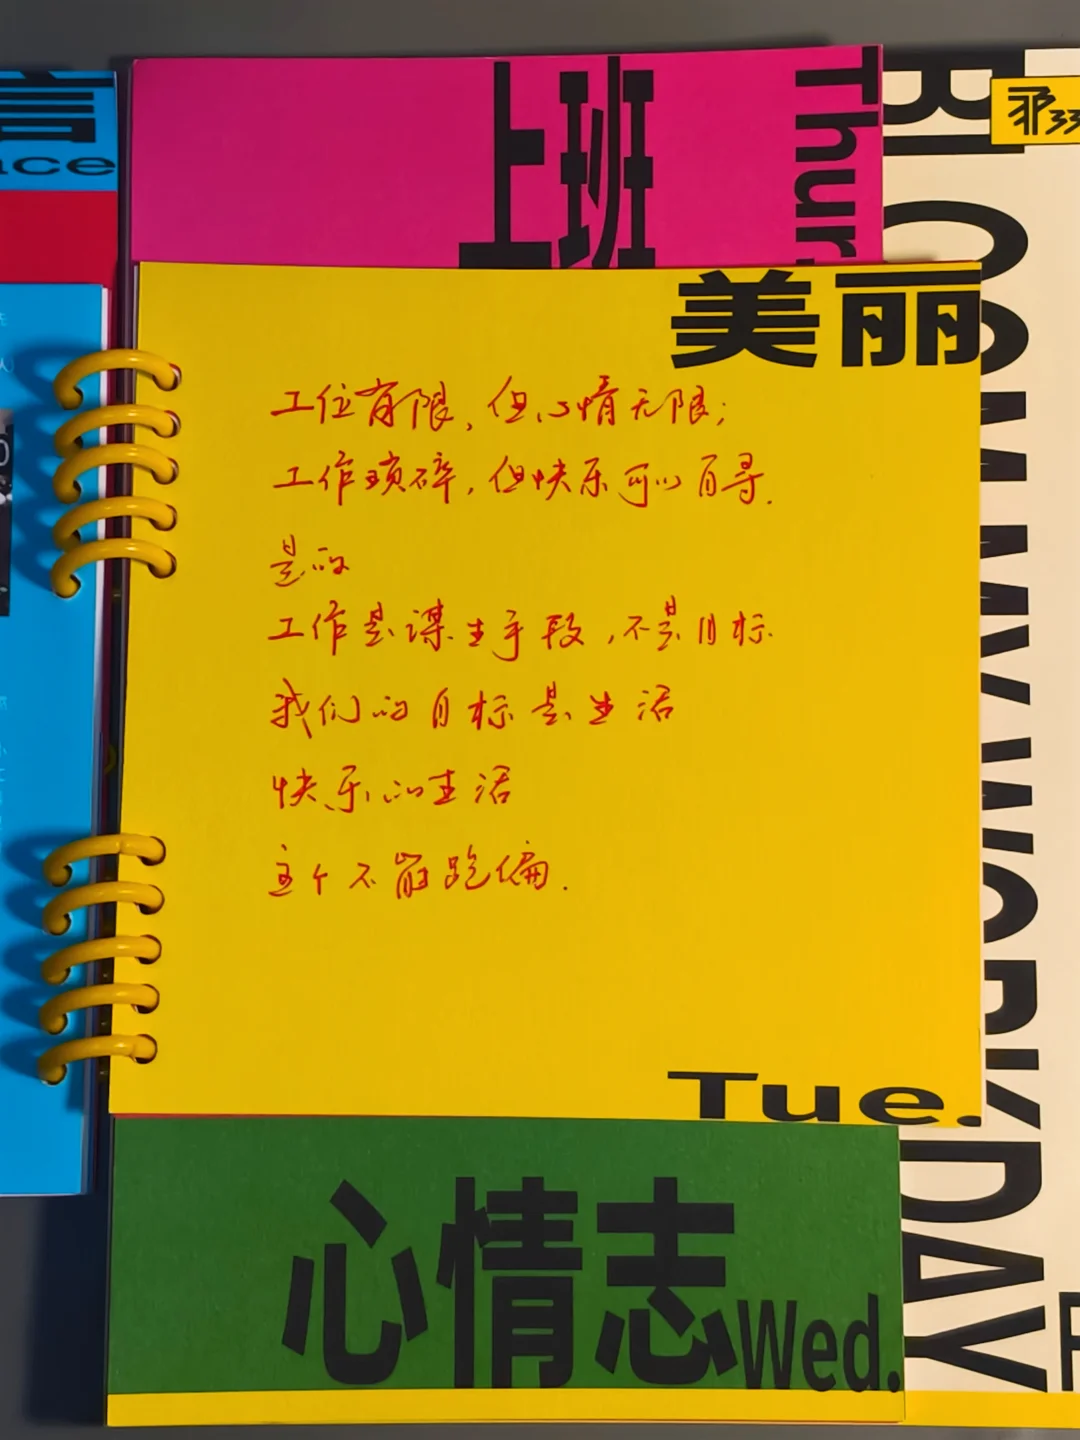 言
ace
上班
Thur.
BLOOMY WORKDAY
美丽
工位有限，但心情无限；
工作琐碎，但快乐可以自寻.
是的
工作是谋生手段，不是目标
我们的目标是生活
快乐的生活
这个不能跑偏.
Tue.
心情志
Wed.